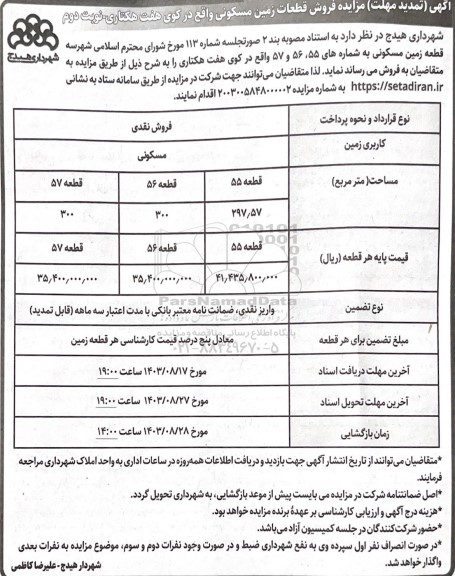 آگهی (تمدید مهلت) مزایده فروش قطعات زمین مسکونی واقع در کوی هفت هکتاری-نوبت دوم
شهرداری هیدج در نظر دارد به استناد مصوبه بند ۲ صورتجلسه شماره ۱۱۳ مورخ شورای محترم اسلامی شهر سه
قطعه زمین مسکونی به شماره های ۵۵، ۵۶ و ۵۷ واقع در کوی هفت هکتاری را به شرح ذیل از طریق مزایده به
متقاضیان به فروش می رساند نماید. لذا متقاضیان می‌توانند جهت شرکت در مزایده از طریق سامانه ستاد به نشانی
https://setadiran.ir به شماره مزایده ۲۰۰۳۰۰۵۸۴۸۰۰۰۰۰۲ اقدام نمایند.
شهرداری هیدج
نوع قرارداد و نحوه پرداخت
فروش نقدی
کاربری زمین
مسکونی
مساحت( متر مربع)
قطعه ۵۵
قطعه ۵۶
قطعه ۵۷
۲۹۷٫۵۷
۳۰۰
۳۰۰
قیمت پایه هر قطعه (ریال)
قطعه ۵۵
قطعه ۵۶
قطعه ۵۷
۴۱٫۴۳۵٫۸۰۰٫۰۰۰
۳۵٫۴۰۰٫۰۰۰٫۰۰۰
۳۵٫۴۰۰٫۰۰۰٫۰۰۰
ParsNamadData
نوع تضمین
واریز نقدی، ضمانت نامه معتبر بانکی با مدت اعتبار سه ماهه (قابل تمدید)
پایگاه اطلاع رسانی مناقصه و مزایده
مبلغ تضمین برای هر قطعه
معادل پنج درصد قیمت کارشناسی هر قطعه زمین
۰۲۱-۸۸۳۴۹۶۷۰-۵
آخرین مهلت دریافت اسناد
مورخ ۱۴۰۳/۰۸/۱۷ ساعت ۱۹:۰۰
آخرین مهلت تحویل اسناد
مورخ ۱۴۰۳/۰۸/۲۷ ساعت ۱۹:۰۰
زمان بازگشایی
مورخ ۱۴۰۳/۰۸/۲۸ ساعت ۱۴:۰۰
*متقاضیان می‌توانند از تاریخ انتشار آگهی جهت بازدید و دریافت اطلاعات همه‌روزه در ساعات اداری به واحد املاک شهرداری مراجعه
فرمایند.
*اصل ضمانتنامه شرکت در مزایده می بایست پیش از موعد بازگشایی، به شهرداری تحویل گردد.
*هزینه درج آگهی و ارزیابی کارشناسی بر عهدۀ برنده مزایده خواهد بود.
*حضور شرکت‌کنندگان در جلسه کمیسیون آزاد می‌باشد.
*در صورت انصراف نفر اول سپرده وی به نفع شهرداری ضبط و در صورت وجود نفرات دوم و سوم، موضوع مزایده به نفرات بعدی
واگذار خواهد شد.
شهردار هیدج-علیرضا کاظمی